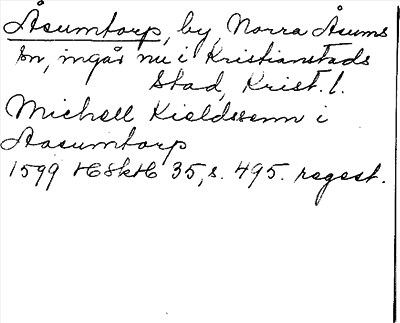 Åsumtorp, by, Norra Åsums
sn, ingår nu i Kristianstads
stad, Krist. l.
Michell Kieldssenn i
Aasumtorp
1599 HSkH 35, s. 495. regest.